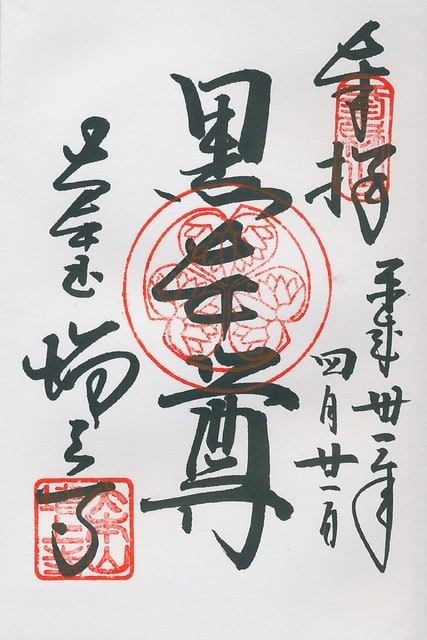 奉拝
平成卅一年
四月廿一日
黒本尊
増上寺